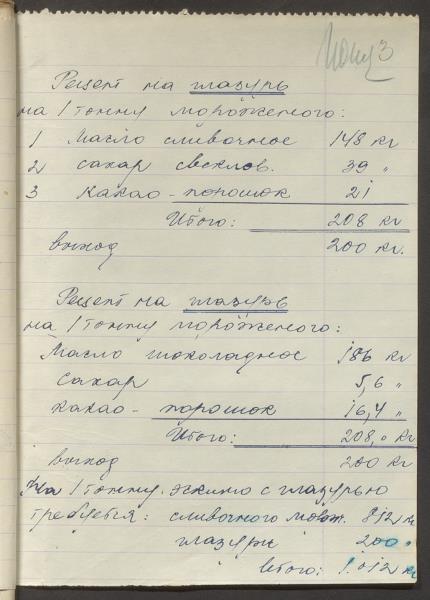 3
Рецепт на глазурь
на 1 тонну мороженого:
1 Масло сливочное 148 кг
2 сахар свеклов. 39 "
3 какао-порошок 21
Итого: 208 кг
выход 200 кг.
Рецепт на глазурь
на 1 тонну мороженого:
Масло шоколадное 186 кг
сахар 5,6 "
какао-порошок 16,4 "
Итого: 208,0 кг
выход 200 кг
На 1 тонну эскимо с глазурью
требуется: сливочного морож. 812 кг
глазури 200 "
Итого: 1.012 кг